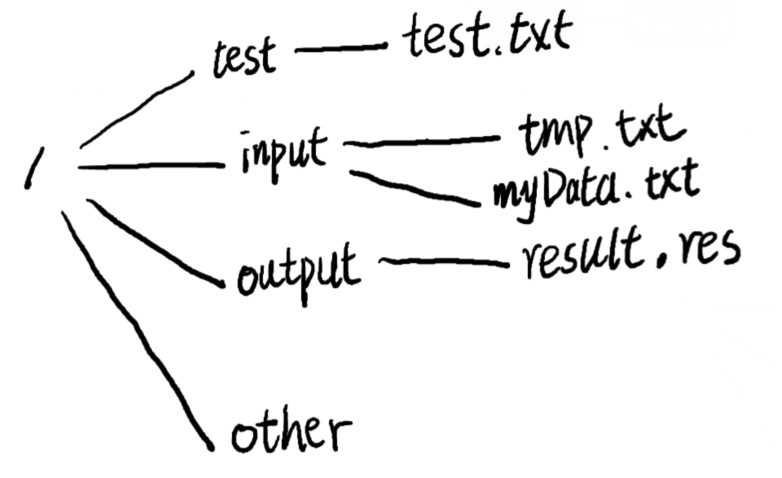 /
test test.txt
input tmp.txt
myData.txt
output result.res
other